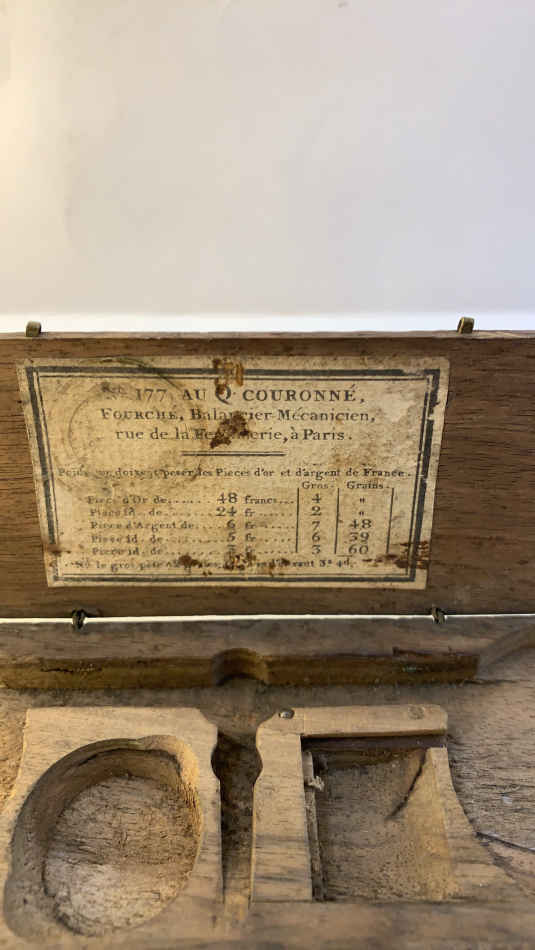 No. 177, AU Q COURONNÉ,
FOURCHE, Balancier-Mécanicien,
rue de la Ferronnerie, à Paris.
Poids que doivent peser les Pieces d'or et d'argent de France.
Gros. Grains.
Piece d'Or de....... 48 francs... 4 "
Piece id. de........ 24 fr 2 "
Piece d'Argent de. 6 fr 7 48
Piece id. de........ 5 fr 6 39
Piece id. de........ 3 60
le gros pese